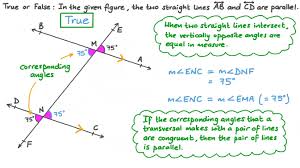 True or False: In the given figure, the two straight lines AB and CD are parallel.
True
When two straight lines intersect,
the vertically opposite angles
are equal in measure.
E
M
75°
75°
A
B
corresponding
angles
m∠ENC = m∠DNF
= 75°
m∠ENC = m∠EMA (= 75°)
D
N
75°
75°
C
F
If the corresponding angles that a
transversal makes with a pair of lines
are congruent, then the pair of lines
is parallel.